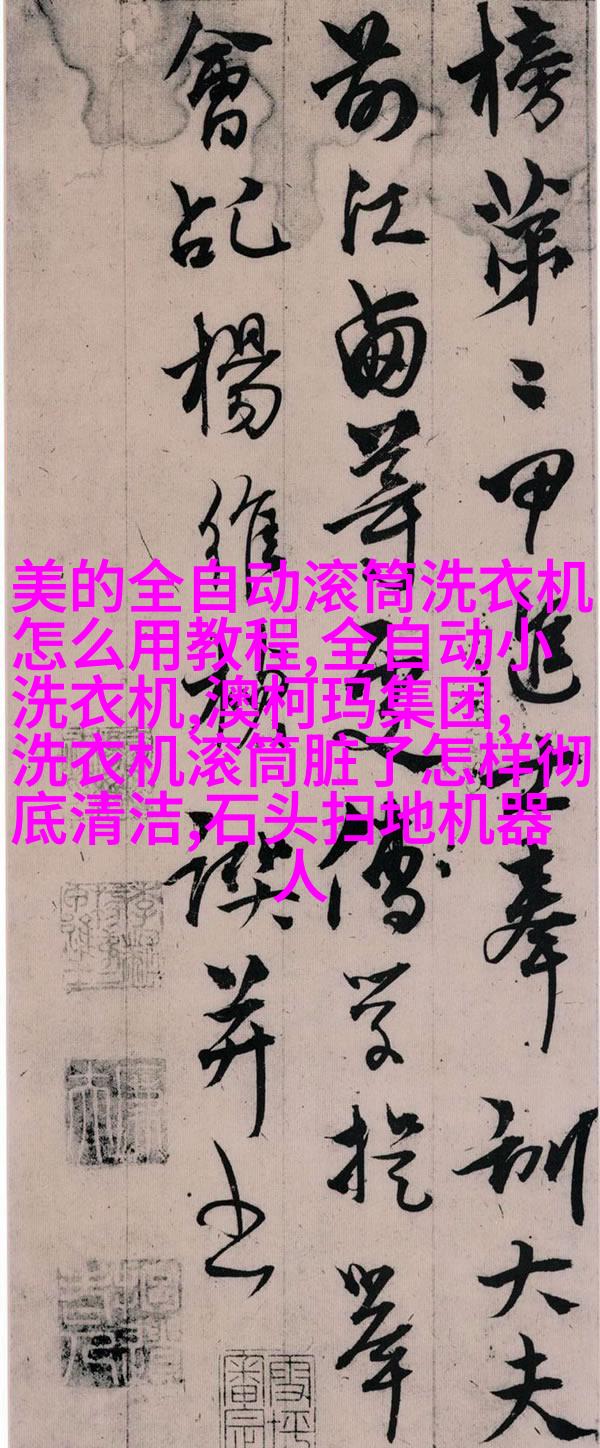 榜第二甲進士奉訓大夫
前江西等處儒學提舉
會乩楊維楨譔并书
美的全自动滚筒洗衣机
怎么用教程,全自动小
洗衣机,澳柯玛集团,
洗衣机滚筒脏了怎样彻
底清洁,石头扫地机器
人